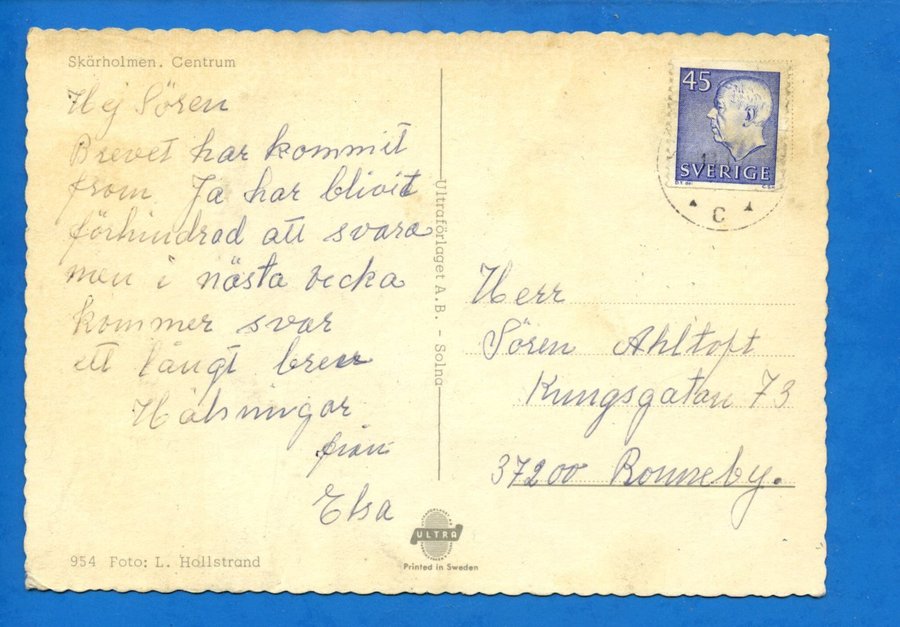 Skärholmen. Centrum
Hej Sören
Brevet har kommit
from. Ja har blivit
förhindrad att svara
men i nästa vecka
kommer svar
ett långt brev
Hälsningar
från
Elsa
954 Foto: L. Hollstrand
Ultraförlaget A.B. - Solna
ULTRA
Printed in Sweden
45
SVERIGE
C
Herr
Sören Ahltoft
Kungsgatan 73
37200 Ronneby.